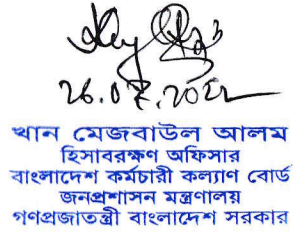 26.07.2022
খান মেজবাউল আলম
হিসাবরক্ষণ অফিসার
বাংলাদেশ কর্মচারী কল্যাণ বোর্ড
জনপ্রশাসন মন্ত্রণালয়
গণপ্রজাতন্ত্রী বাংলাদেশ সরকার